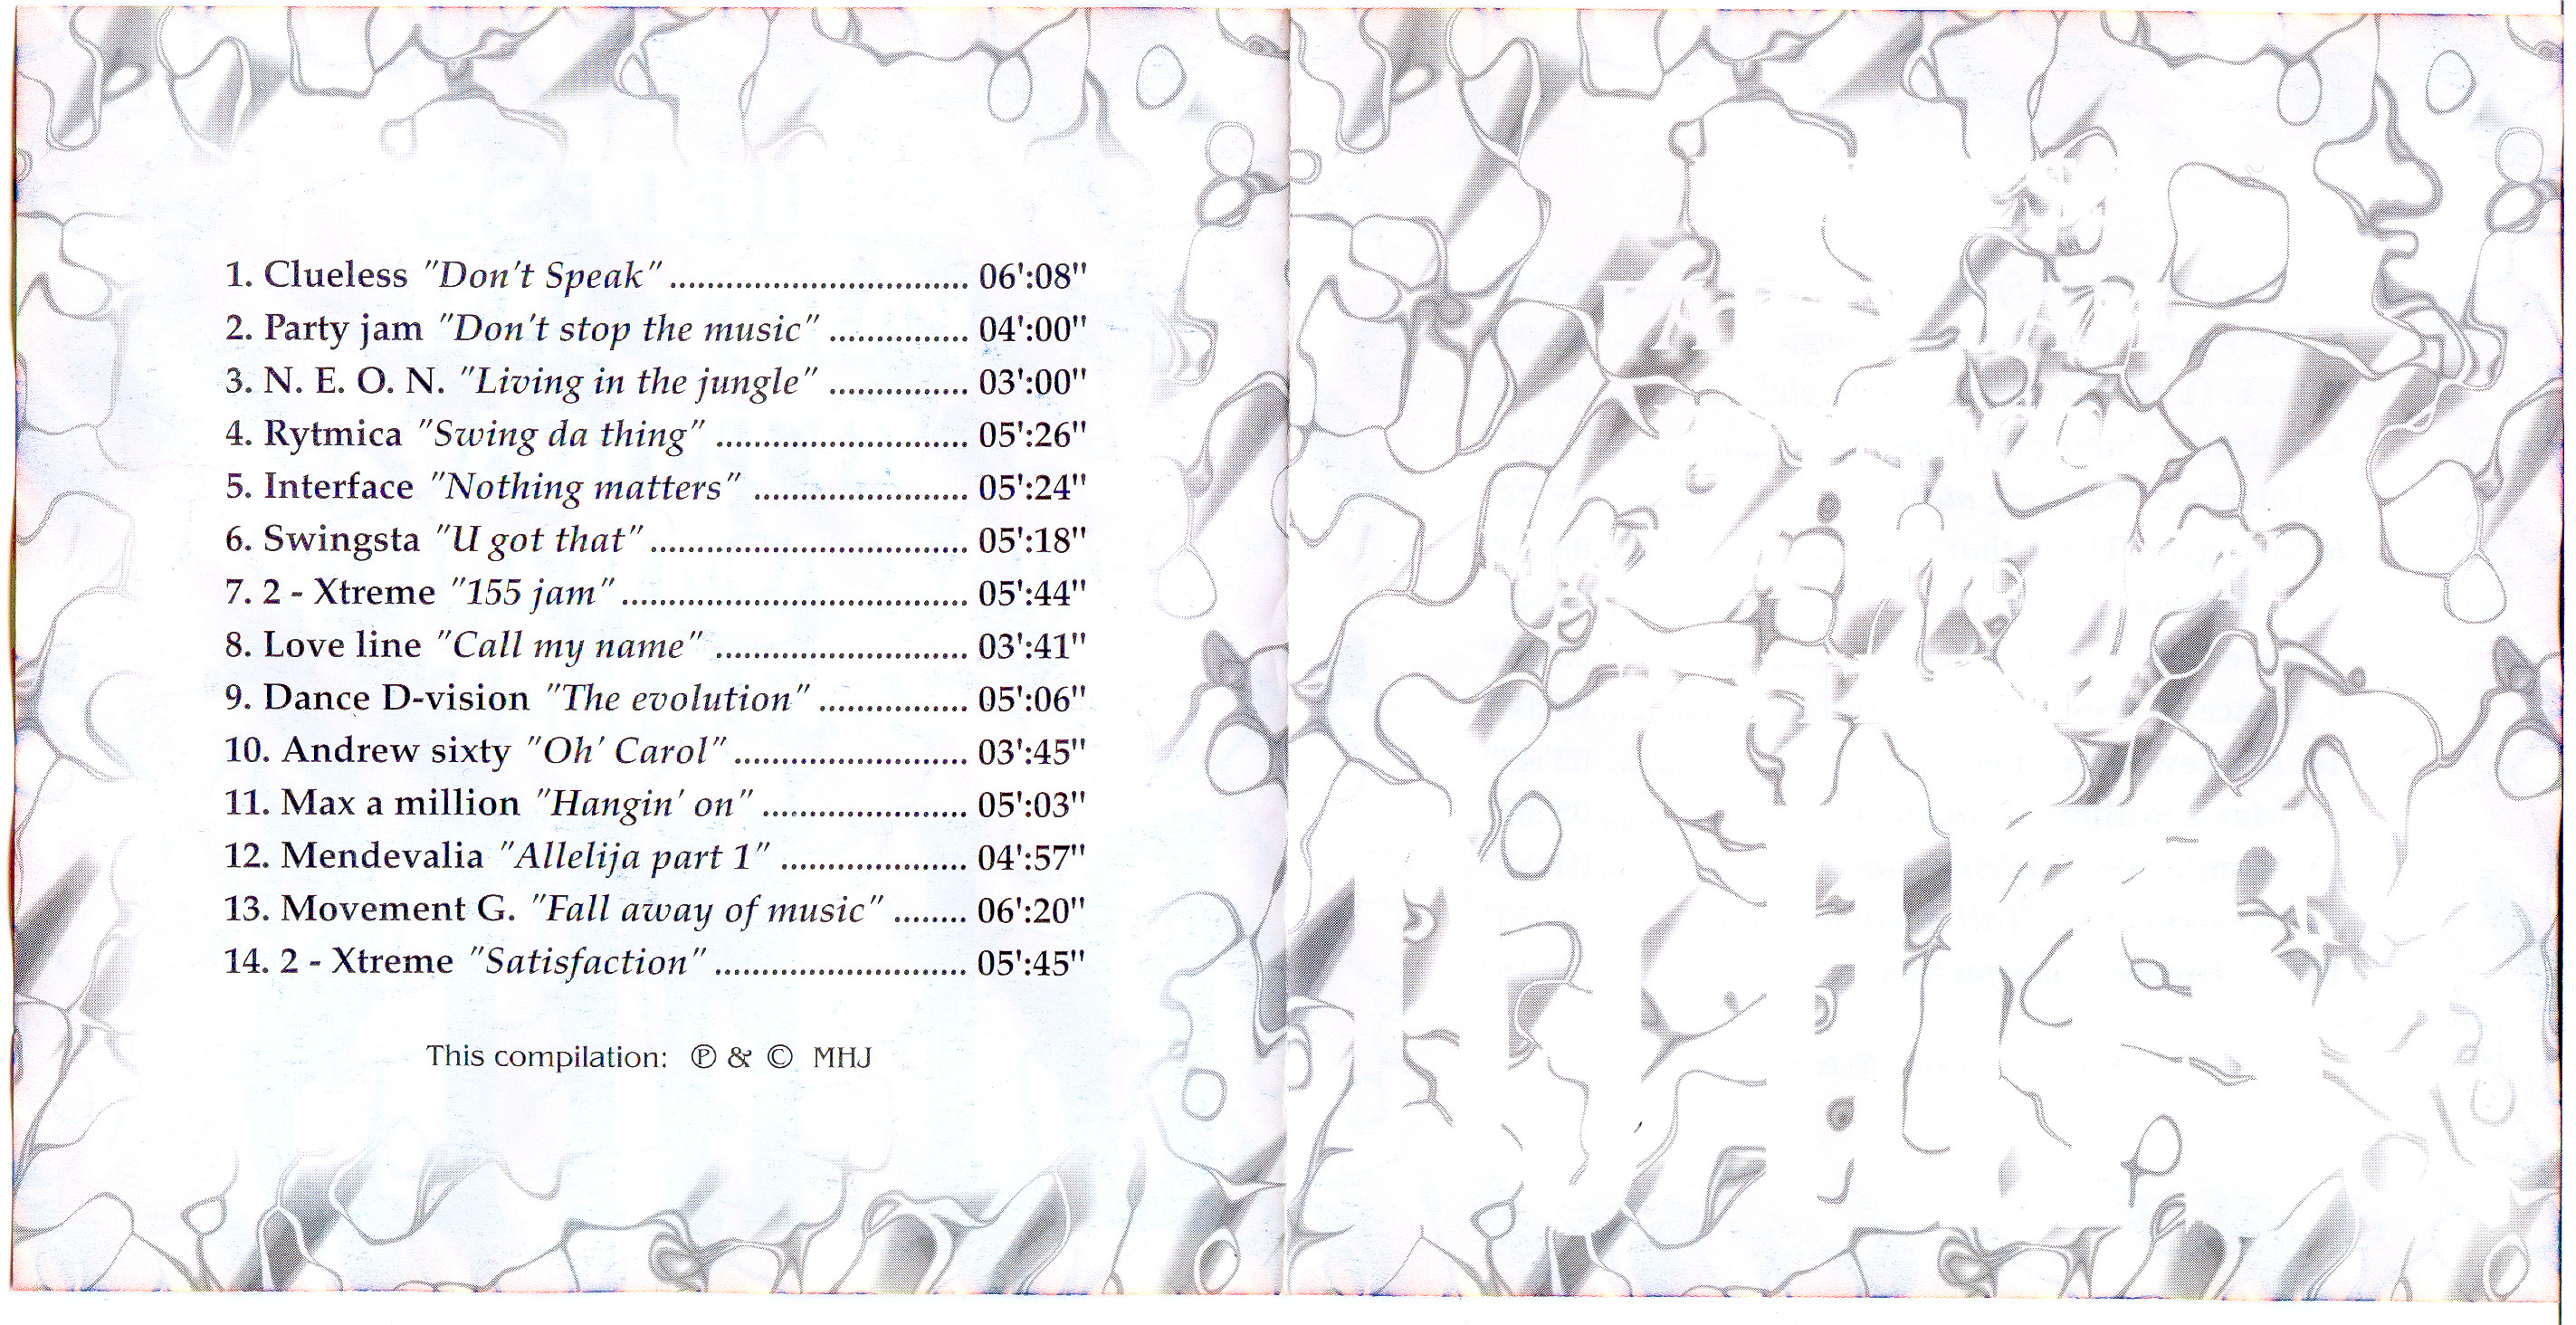 1. Clueless "Don't Speak" ................................ 06':08"
2. Party jam "Don't stop the music" ............... 04':00"
3. N. E. O. N. "Living in the jungle" ............... 03':00"
4. Rytmica "Swing da thing" ........................... 05':26"
5. Interface "Nothing matters" ....................... 05':24"
6. Swingsta "U got that" .................................. 05':18"
7. 2 - Xtreme "155 jam" ..................................... 05':44"
8. Love line "Call my name" ........................... 03':41"
9. Dance D-vision "The evolution" ................ 05':06"
10. Andrew sixty "Oh' Carol" ......................... 03':45"
11. Max a million "Hangin' on" ...................... 05':03"
12. Mendevalia "Allelija part 1" .................... 04':57"
13. Movement G. "Fall away of music" ........ 06':20"
14. 2 - Xtreme "Satisfaction" ........................... 05':45"
This compilation: ℗ & © MHJ